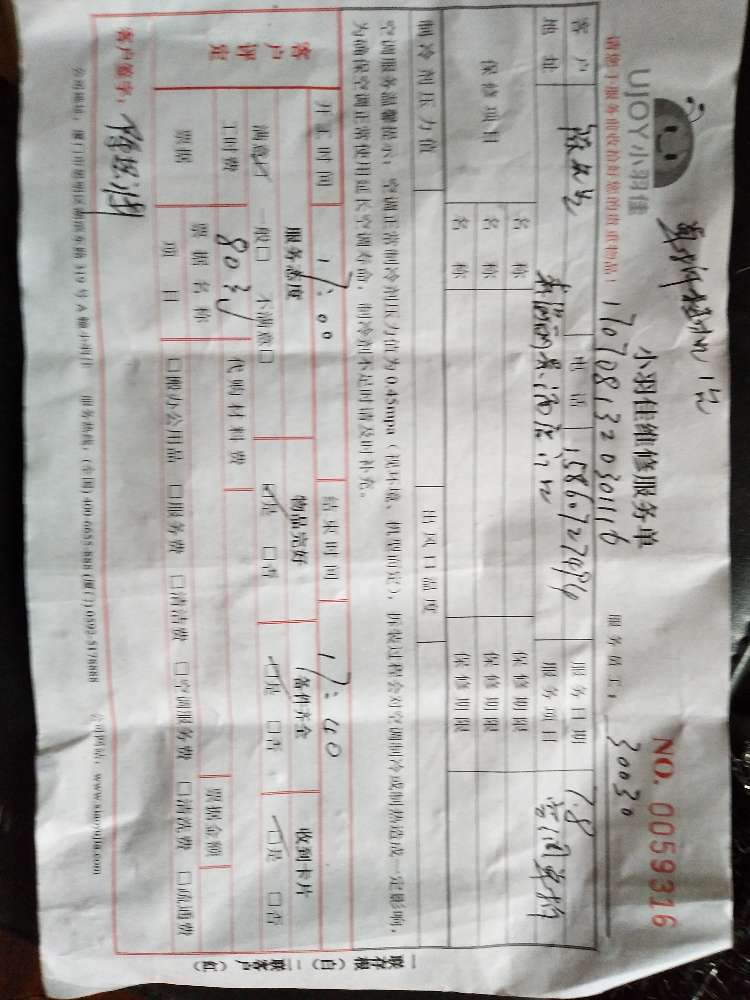 UJOY小羽佳
小羽佳维修服务单
NO. 0059316
请您于服务前收拾好您的贵重物品!
服务员工: 30030
客户
电话 15860727476
服务日期 7.8
地址
服务项目
保修项目
名称 保修期限
名称 保修期限
名称 保修期限
制冷剂压力值 出风口温度
空调服务温馨提示:空调正常制冷剂压力值为0.45mpa(视环境、机型而定),拆装过程会对空调制冷或制热造成一定影响,
为确保空调正常使用延长空调寿命,制冷剂不足时请及时补充。
客户评定
开工时间 17:00 结束时间 17:40
服务态度 物品完好 备件齐全 收到卡片
满意☑ 一般□ 不满意□ ☑是 □否 ☑是 □否 ☑是 □否
工时费 80 代购材料费
票据 票据名称 票据金额
项目 □办公用品 □服务费 □清洁费 □空调服务费 □清洗费 □疏通费
客户签字:
服务热线:(全国)400-6655-888 (厦门)0592-5178888 公司网站:www.xiaoyujia.com
一联存根(白)二联客户(红)